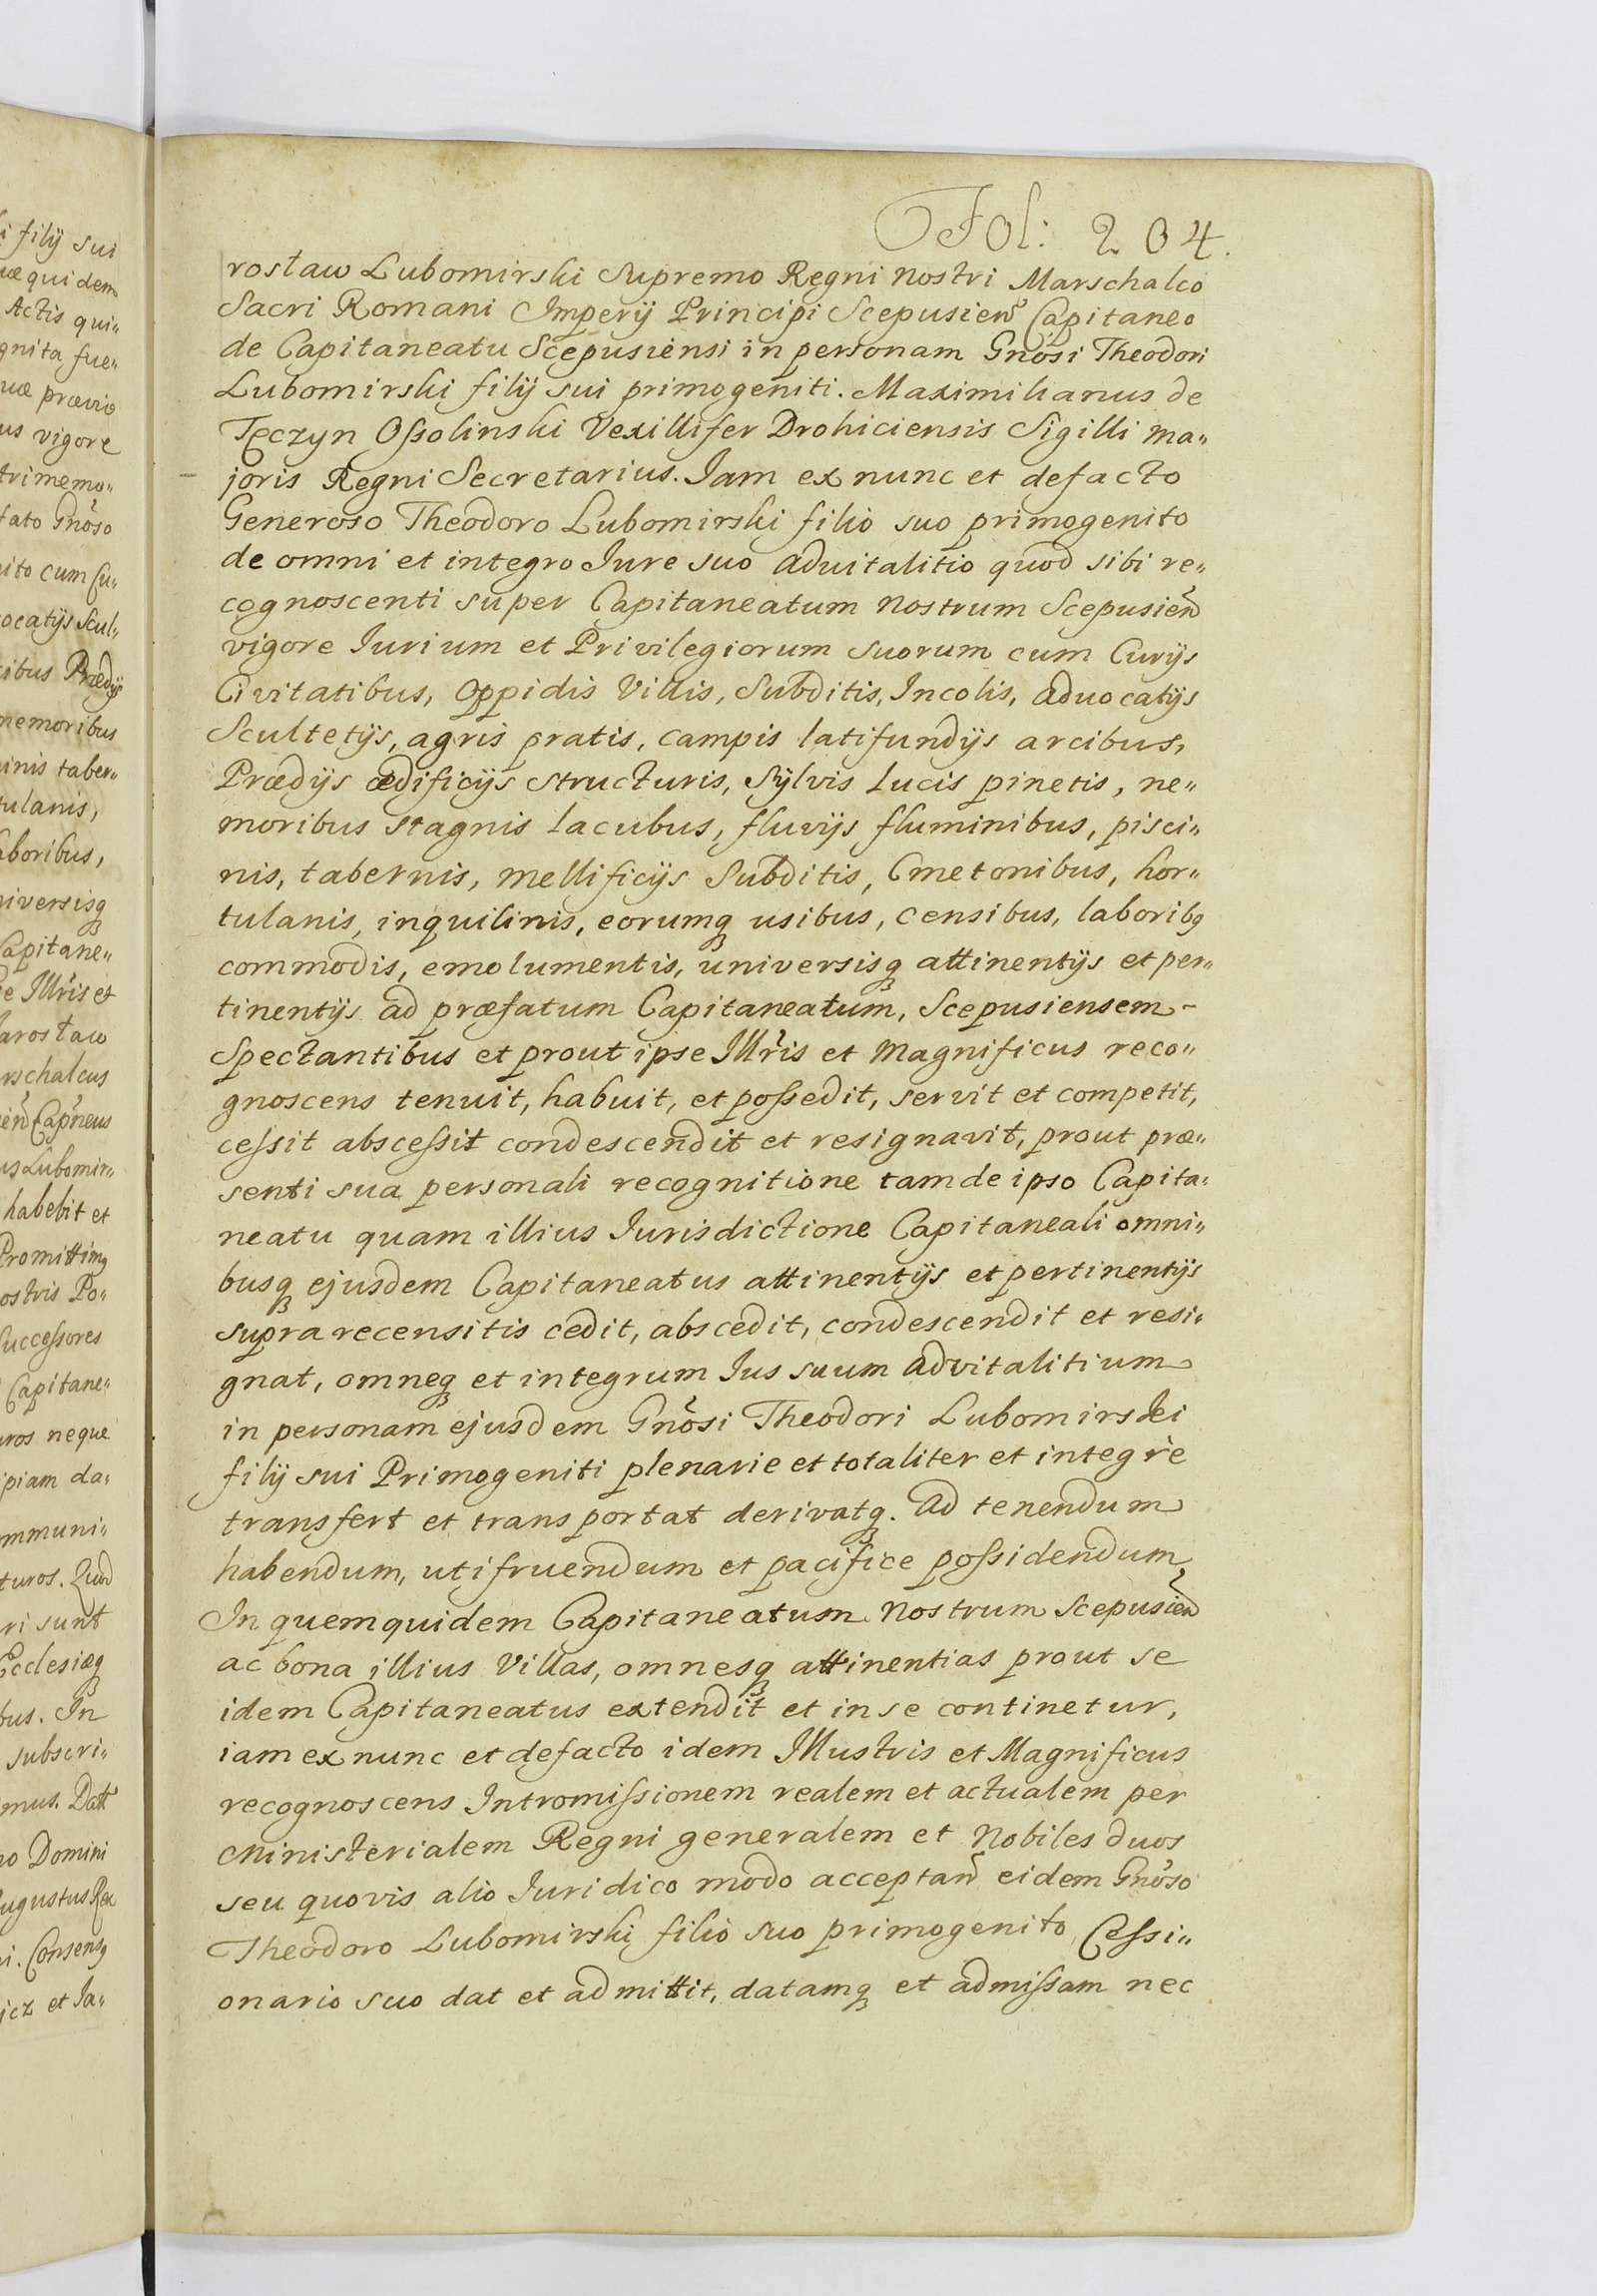 Fol: 204.
rosław Lubomirski Supremo Regni Nostri Marschalco
Sacri Romani Imperÿ Principi Scepusień Capitaneo
de Capitaneatu Scepusiensi in personam Gnõsi Theodori
Lubomirski filÿ sui primogeniti. Maximilianus de
Tęczyn Oſsolinski Vexillifer Drohiciensis Sigilli ma„
joris Regni Secretarius. Iam ex nunc et defacto
Generoso Theodoro Lubomirski filio suo primogenito
de omni et integro Iure suo aduitalitio quod sibi re„
cognoscenti super Capitaneatum Nostrum Scepusień
vigore Iurium et Privilegiorum suorum cum Curÿs
Civitatibus, Oppidis Villis, Subditis, Incolis, aduocatÿs
Scultetÿs, agris pratis, campis latifundÿs arcibus,
Prædÿs ædificÿs structuris, Sylvis lucis pinetis, ne„
moribus stagnis lacubus, fluvÿs fluminibus, pisci„
nis, tabernis, mellificÿs Subditis, Cmetonibus, hor„
tulanis, inquilinis, eorumq usibus, censibus, laboribq
commodis, emolumentis, universisq attinentÿs et per„
tinentÿs ad præfatum Capitaneatum, Scepusiensem -
Spectantibus et prout ipse Illr̃is et Magnificus reco„
gnoscens tenuit, habuit, et poſsedit, servit et competit,
ceſsit absceſsit condescendit et resignavit, prout præ„
senti sua personali recognitione tam de ipso Capita„
neatu quam illius Iurisdictione Capitaneali omni„
busq ejusdem Capitaneatus attinentÿs et pertinentÿs
supra recensitis cedit, abscedit, condescendit et resi„
gnat, omneq et integrum Ius suum advitalitium
in personam ejusdem Gnõsi Theodori Lubomirski
filÿ sui Primogeniti plenarie et totaliter et integre
transfert et transportat derivatq. Ad tenendum
habendum, utifruendum et pacifice poſsidendum,
In quemquidem Capitaneatum Nostrum Scepusień
ac bona illius Villas, omnesq attinentias prout se
idem Capitaneatus extendit et in se continetur,
iam ex nunc et defacto idem Illustris et Magnificus
recognoscens Intromiſsionem realem et actualem per
Ministerialem Regni generalem et Nobiles duos
seu quovis alio Iuridico modo acceptań eidem Gnõso
Theodoro Lubomirski filio suo primogenito Ceſsi„
onario suo dat et admittit, datamq et admiſsam nec